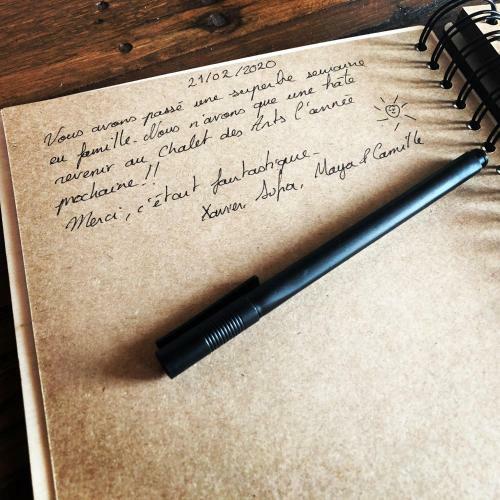 21/02/2020
Vous avons passé une superbe semaine
en famille. Nous n'avons que une hâte
revenir au Chalet des Arts l'année
prochaine !!
Merci, c'était fantastique.
Xavier, Sofia, Maya & Camille